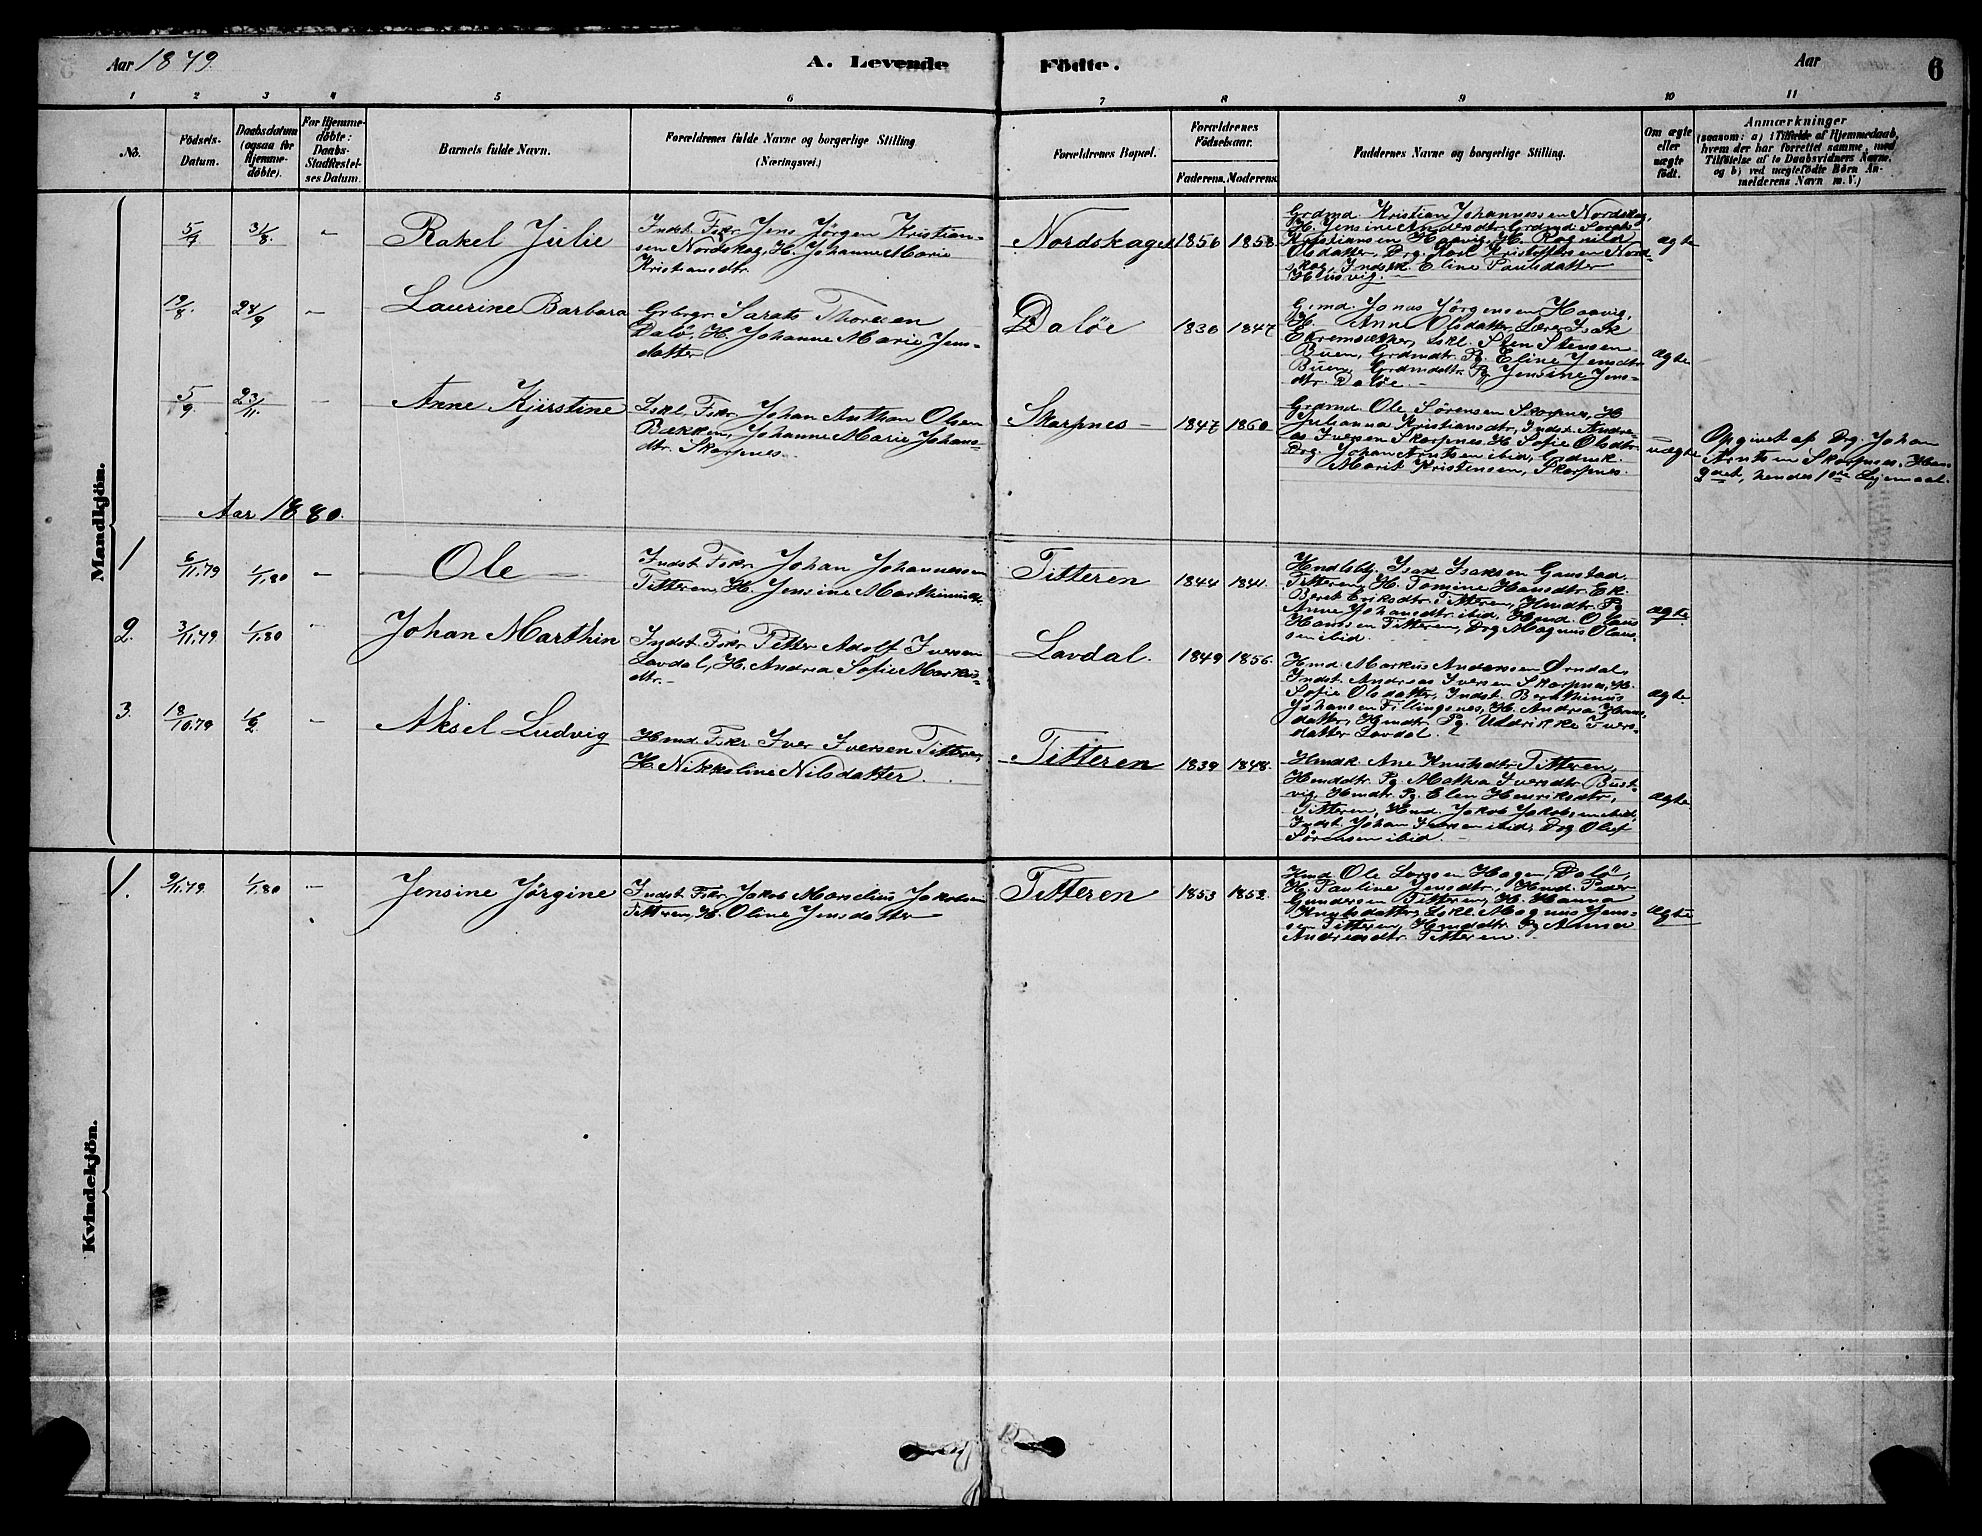 Aar 1879.
A. Levende
Födte.
Aar
6
1 2 3 4 5 6 7 8 9 10 11
No.
Födsels-
Datum.
Daabsdatum
(ogsaa for
Hjemme-
döbte).
For Hjemme-
döbte:
Daabs-
Stadfæstel-
ses Datum.
Barnets fulde Navn.
Forældrenes fulde Navne og borgerlige Stilling
(Næringsvei.)
Forældrenes Bopæl.
Forældrenes
Födselsaar.
Faderens. Moderens.
Faddernes Navne og borgerlige Stilling.
Om ægte
eller
uægte
födt.
Anmærkninger
(saasom: a) i Tilfælde af Hjemmedaab,
hvem der har forrettet samme, med
Tilföielse af to Daabsvidners Navne.
og b) ved uægtefödte Börn An-
melderens Navn m. V.)
Mandkjön.
5/7 3/8. –
Rakel Julie
Indst. Fskr. Jens Jörgen Kristian-
sen Nordskag, H. Johanne Marie
Kristiansdtr.
Nordskagen 1856 1858.
Grdmd. Kristian Johannessen Nordskag,
H. Jensine Andersdtr. Grdmd. Sarats
Kristiansen Haavig, H. Ragnild
Olsdatter, Drg. Karl Kristoffersen Nord-
skag, Indstk. Eline Paulsdatter
Husvig. –
ægte
19/8. 24/9 –
Laurine Barbara
Grbrgr. Sarats Thoresen
Dalö, H. Johanne Marie Jens-
datter
Dalöe 1830 1847
Grmd. Jonas Jörgensen Haavig,
H. Anne Olsdatter, Lærer Isak
Sten Stensen
Buen, Grdmdtr. Pg. Eline Jensdtr.
Buen, Grdmdtr. Pg. Jensine Jens-
dtr. Dalöe. –
ægte
5/9. 23/11. –
Anne Kjirstine
Lskl. Fskr. Johan Anthon Olsen
Bækken, Johanne Marie Johans-
dtr. Skarpnes.
Skarpnes – 1847 1860.
Grdmd. Ole Sörensen Skarpnes, H.
Julianna Kristiansdtr, Indst. Andre-
as Iversen Skarpnes, H. Sofie Olsdtr.
Drg. Johan Arntsen ibid,
Marit Kristensen, Skarpnes.
uægte
Opgivet af Drg. Johan
Arntsen Skarpnes. Hans
2det, hendes 1ste Leiemaal.
Aar 1880.
1 6/11.79 1/1.80 –
Ole –
Indst. Fskr. Johan Johannessen
Titteren, H. Jensine Marthinusdtr.
Titteren 1844 1841.
Hndlsbtj. Isak Isaksen Gaustad.
Titteren, H. Tomine Hansdtr. Ek.
Beret Eriksdtr. Titteren, Hmdtr. Pg.
Anne Johansdtr. ibid, Hmd. Olaus
Hanssen Titteren, Drg. Magnus Olaus-
sen ibid.
ægte.
2. 3/11.79 1/1.80
Johan Marthin
Indst. Fskr. Petter Adolf Iversen
Lavdal, H. Andrea Sofie Markus-
dtr. –
Lavdal. 1849 1856.
Hmd. Markus Anderssen Örndal,
Indst. Andreas Iversen Skarpnes, H.
Sofie Olsdatter, Indst. Berthinus
Johansen Fillingsnes, H. Andrea Hans-
datter, Hmdtr. Pg. Uldrikke Ivers-
datter Lavdal.
ægte
3. 18/10.79 1/2. –
Aksel Ludvig
Hmd. Fskr. Iver Iversen Titteren,
H. Nikkoline Nilsdatter.
Titteren 1839 1848.
Hmdk. Ane Knutsdtr. Titteren,
Hmddtr. Pg. Mathea Iversdtr. Bust-
vig, Hmdtr. Pg. Elen Henriksdtr,
Titteren, Hmd. Jakob Jakobsen ibid,
Indst. Johan Iversen ibid, Drg. Oluf
Sörensen ibid. –
ægte
Kvindekjön.
1. 9/11.79. 1/1.80 –
Jensine Jörgine
Indst. Fskr. Jakob Marselius Jakobsen
Titteren, H. Oline Jensdatter
Titteren 1853 1853.
Hmd. Ole Larssen Hagen, Dalö,
H. Pauline Jensdtr, Hmd. Peder
Gundersen Titteren, H. Hanna
Knutsdatter, Lskl. Magnus Jens-
sen Titteren, Hmddtr. Pg. Anna
Andreasdtr. Titteren.
ægte